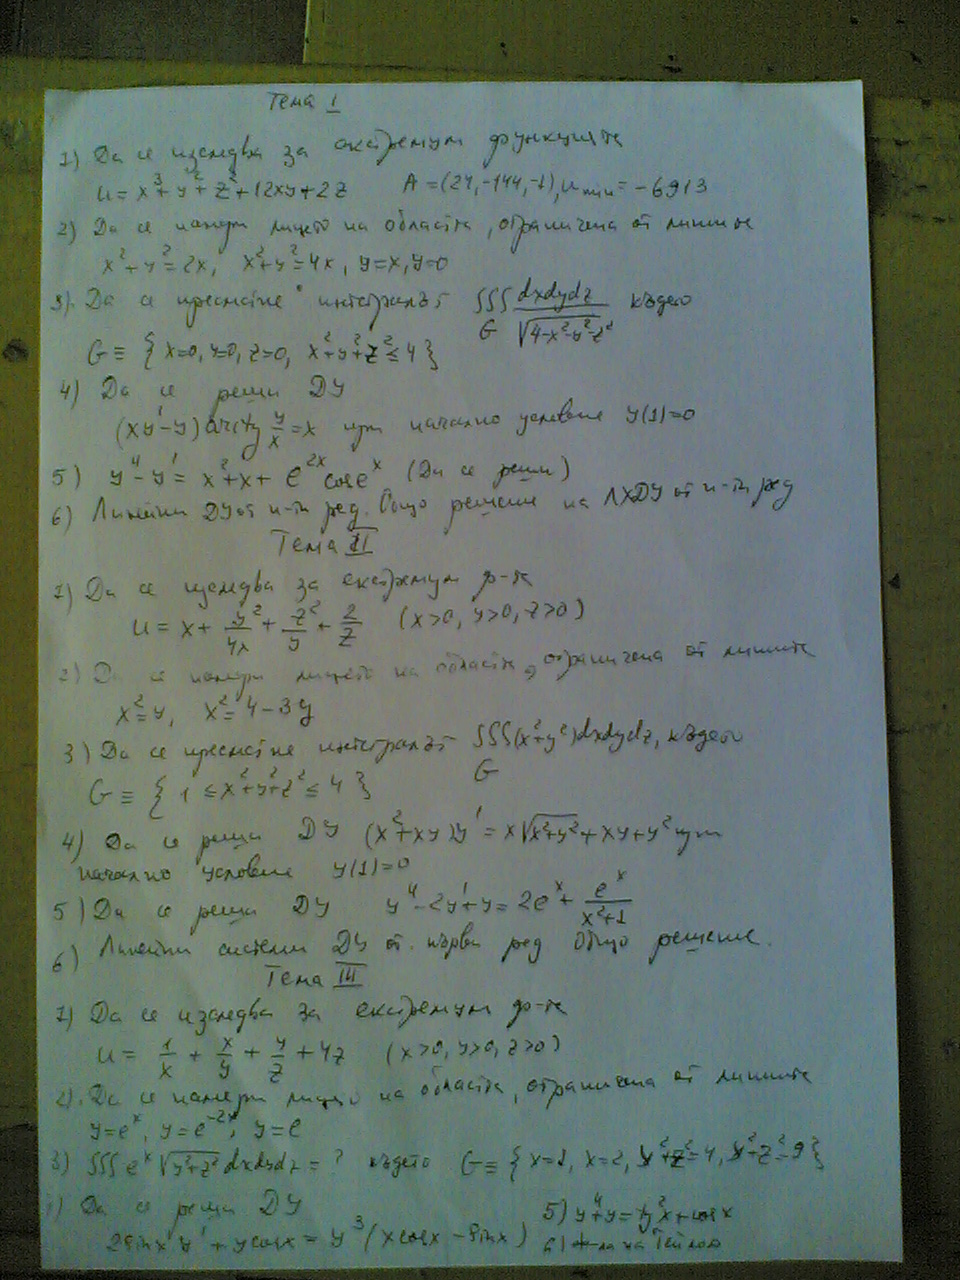 Тема I
1) Да се изследва за екстремум функцията
u = x³ + y² + z² + 12xy + 2z A = (24, -144, -1), u min = -6913
2) Да се намери лицето на областта, ограничена от линиите
x² + y² = 2x, x² + y² = 4x, y = x, y = 0
3). Да се пресметне интегралът ∫∫∫ dxdydz / √4-x²-y²-z² където
G
G ≡ { x=0, y=0, z=0, x²+y²+z² ≤ 4 }
4) Да се реши ДУ
(xy' - y) arctg y/x = x при начално условие y(1)=0
5) y" - y' = x² + x + e^2x cos e^x (Да се реши)
6) Линейни ДУ от n-ти ред. Общо решение на ЛХДУ от n-ти ред
Тема II
1) Да се изследва за екстремум ф-та
u = x + y²/4x + z²/y + 2/z (x>0, y>0, z>0)
2) Да се намери лицето на областта, ограничена от линиите
x² = y, x² = 4 - 3y
3) Да се пресметне интегралът ∫∫∫(x²+y²)dxdydz, където
G
G ≡ { 1 ≤ x²+y²+z² ≤ 4 }
4) Да се реши ДУ (x²+xy)y' = x√x²+y² + xy + y² при
начално условие y(1)=0
5) Да се реши ДУ y" - 2y' + y = 2e^x + e^x / x²+1
6) Линейни системи ДУ от първи ред. Общо решение.
Тема III
1) Да се изследва за екстремум ф-та
u = 1/x + x/y + y/z + 4z (x>0, y>0, z>0)
2). Да се намери лицето на областта, ограничена от линиите
y=e^x, y=e^-2x, y=e
3) ∫∫∫ e^x √y²+z² dxdydz = ? където G ≡ { x=1, x=2, y²+z²=4, y²+z²=9 }
Да се реши ДУ
2sinx y' + ycosx = y³ (xcosx - sinx)
5) y" + y = + cosx
6) ф-ла на Тейлор